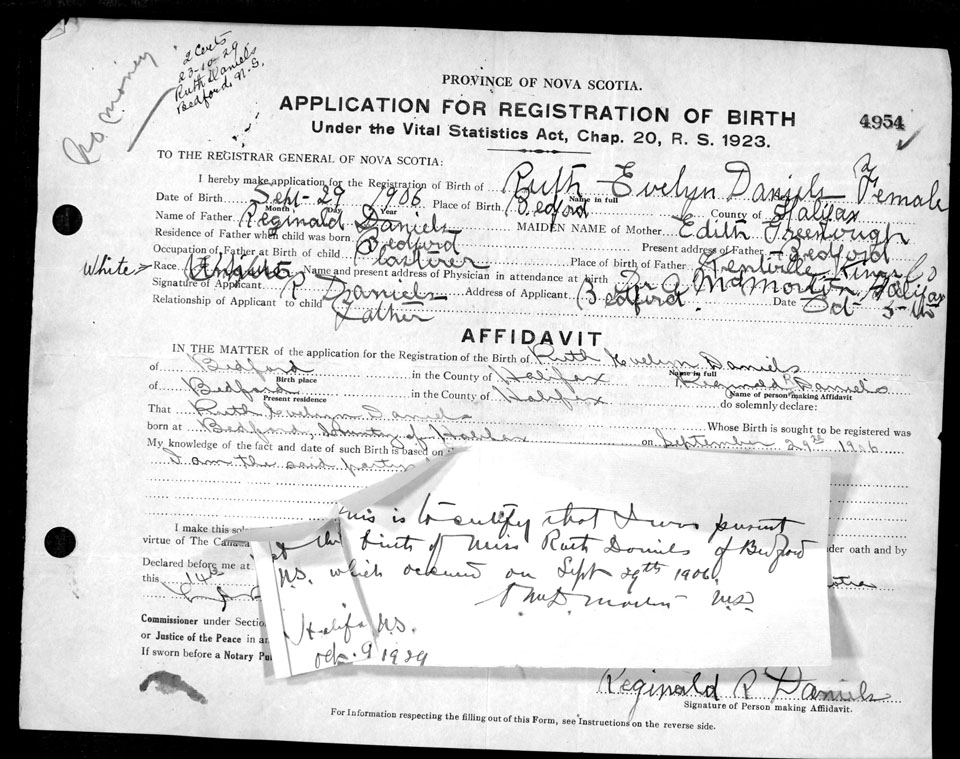 no money
2 Certs
23-10-29
Ruth Daniels
Bedford, N.S.
PROVINCE OF NOVA SCOTIA.
APPLICATION FOR REGISTRATION OF BIRTH
4954
Under the Vital Statistics Act, Chap. 20, R. S. 1923.
TO THE REGISTRAR GENERAL OF NOVA SCOTIA:
I hereby make application for the Registration of Birth of Ruth Evelyn Daniels Female
Name in full
Date of Birth Sept- 29 1906 Place of Birth Bedford County of Halifax
Month Day Year
Name of Father Reginald Daniels MAIDEN NAME of Mother Edith
Residence of Father when child was born Bedford Present address of Father Bedford
Occupation of Father at Birth of child Plasterer Place of birth of Father Kentville Kings Co
White Race Name and present address of Physician in attendance at birth Dr Halifax
Signature of Applicant R Daniels Address of Applicant Bedford Date Oct
Relationship of Applicant to child Father
AFFIDAVIT
IN THE MATTER of the application for the Registration of the Birth of Ruth Evelyn Daniels
Name in full
of Bedford in the County of Halifax Reginald R Daniels
Birth place Name of person making Affidavit
of Bedford in the County of Halifax do solemnly declare:
Present residence
That Ruth Evelyn Daniels Whose Birth is sought to be registered was
born at Bedford, County of Halifax on September 29th 1906
My knowledge of the fact and date of such Birth is based on
I am the said
This is to certify that I was present
at the birth of Miss Ruth Daniels of Bedford
N.S. which occured on Sept 29th 1906.
M.D.
Halifax N.S.
Oct. 9 1929
I make this
virtue of The Canada under oath and by
Declared before me at
this 14th
Commissioner under Section
or Justice of the Peace in
If sworn before a Notary
Reginald R Daniels
Signature of Person making Affidavit.
For Information respecting the filling out of this Form, see Instructions on the reverse side.